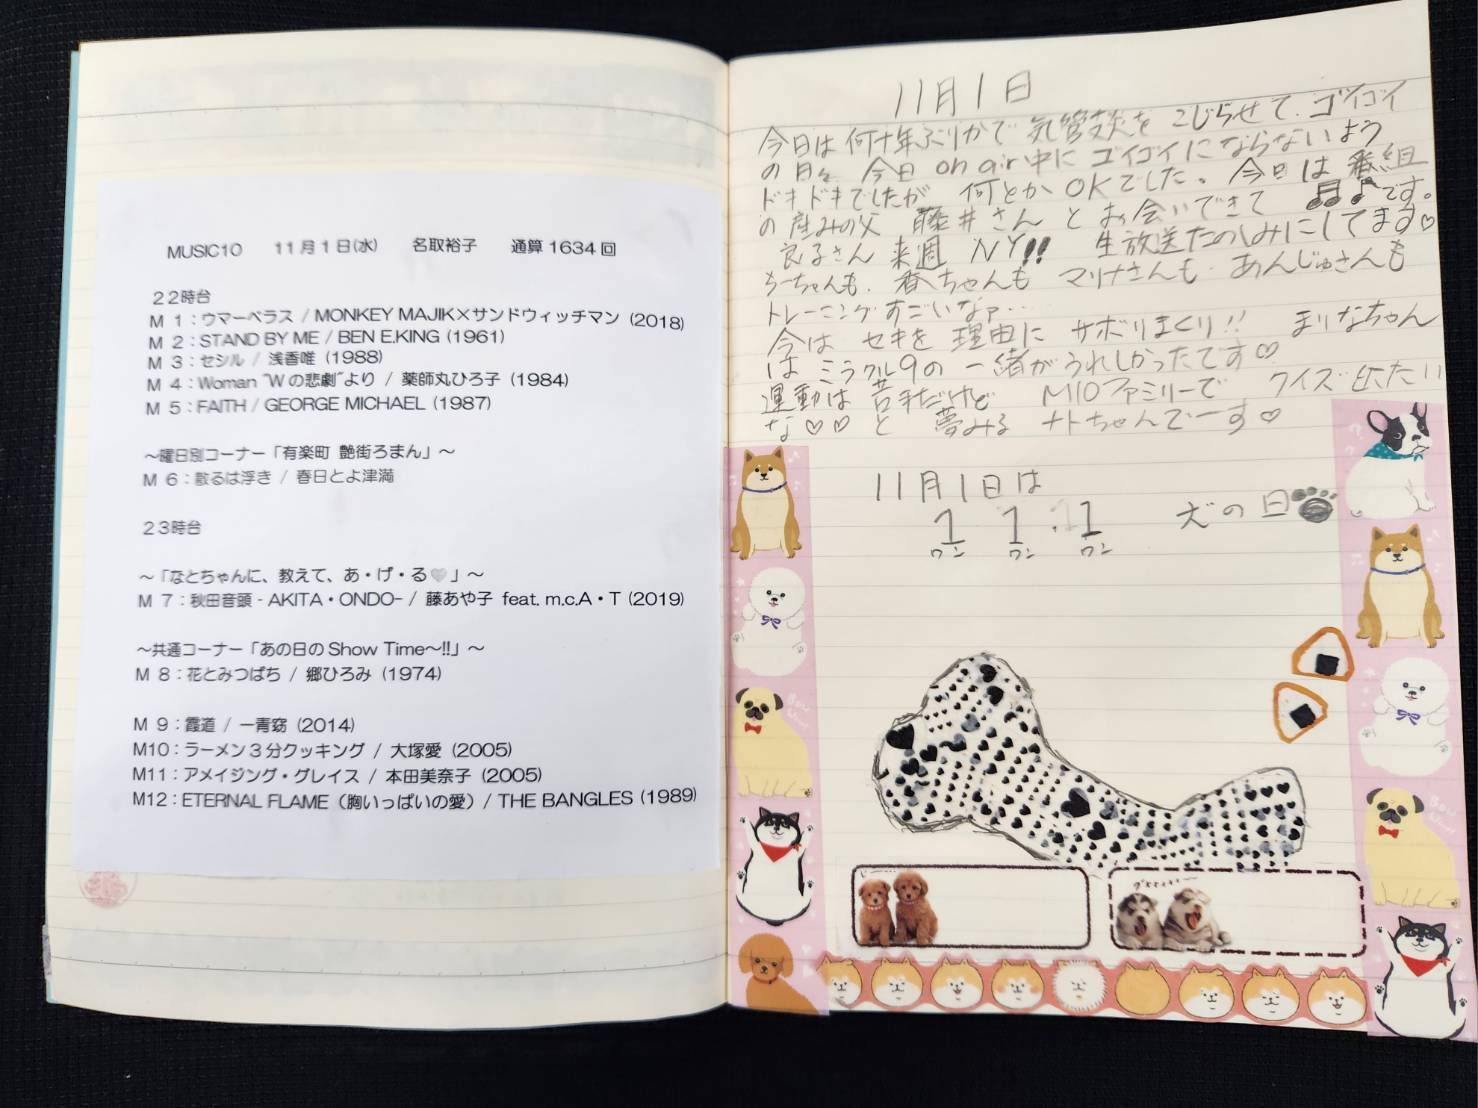 MUSIC10 11月1日(水) 名取裕子 通算1634回
22時台
M 1：ウマーベラス / MONKEY MAJIK×サンドウィッチマン (2018)
M 2：STAND BY ME / BEN E.KING (1961)
M 3：セシル / 浅香唯 (1988)
M 4：Woman "Wの悲劇"より / 薬師丸ひろ子 (1984)
M 5：FAITH / GEORGE MICHAEL (1987)
～曜日別コーナー「有楽町 艶街ろまん」～
M 6：散るは浮き / 春日とよ津満
23時台
～「なとちゃんに、教えて、あ・げ・る♡」～
M 7：秋田音頭 - AKITA・ONDO- / 藤あや子 feat. m.c.A・T (2019)
～共通コーナー「あの日のShow Time～!!」～
M 8：花とみつばち / 郷ひろみ (1974)
M 9：霞道 / 一青窈 (2014)
M10：ラーメン3分クッキング / 大塚愛 (2005)
M11：アメイジング・グレイス / 本田美奈子 (2005)
M12：ETERNAL FLAME（胸いっぱいの愛）/ THE BANGLES (1989)
11月1日
今日は何十年ぶりかで気管支炎をこじらせて、ゴイゴイ
の日々 今日 on air中にゴイゴイにならないよう
ドキドキでしたが 何とかOKでした。今日は番組
の産みの父 藤井さんとお会いできて ♫♪です。
良子さん来週 NY!! 生放送たのしみにしてます♡
ちゃんも、春ちゃんも マリナさんも、あんじゅさんも
トレーニングすごいなァ…
今は セキを理由に サボりまくり!! まりなちゃん
は ミラクル9の一緒がうれしかったです♡
運動は苦手だけど M10ファミリーで クイズ出たい
な♡♡ と 夢みる ナトちゃんでーす♡
11月1日は
1 1 1 犬の日
ワン ワン ワン